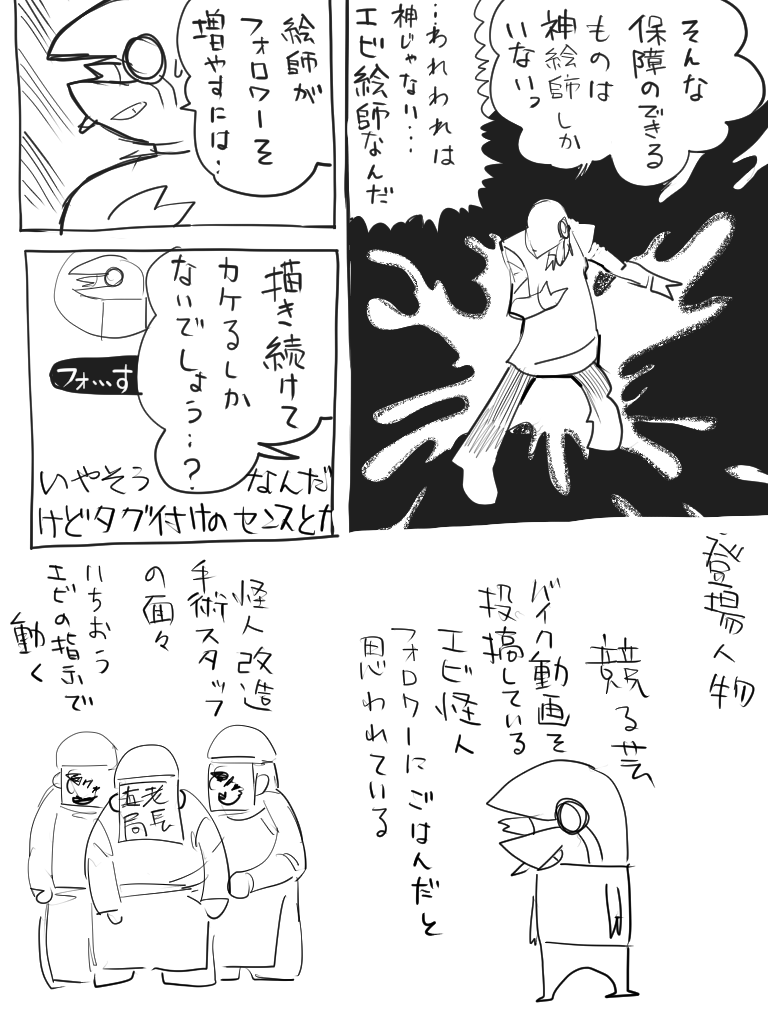 そんな
保障のできる
ものは
神絵師しか
いないっ
…われわれは
神じゃない…
エビ絵師なんだ
絵師が
フォロワーを
増やすには…
描き続けて
カケるしか
ないでしょう…?
フォ…す
いやそう なんだ
けどタグ付けの センスとか
登場人物
競る芸
バイク動画を
投稿している
エビ怪人
フォロワーにごはんだと
思われている
怪人改造
手術スタッフ
の面々
いちおう
エビの指示で
動く
老長
五局